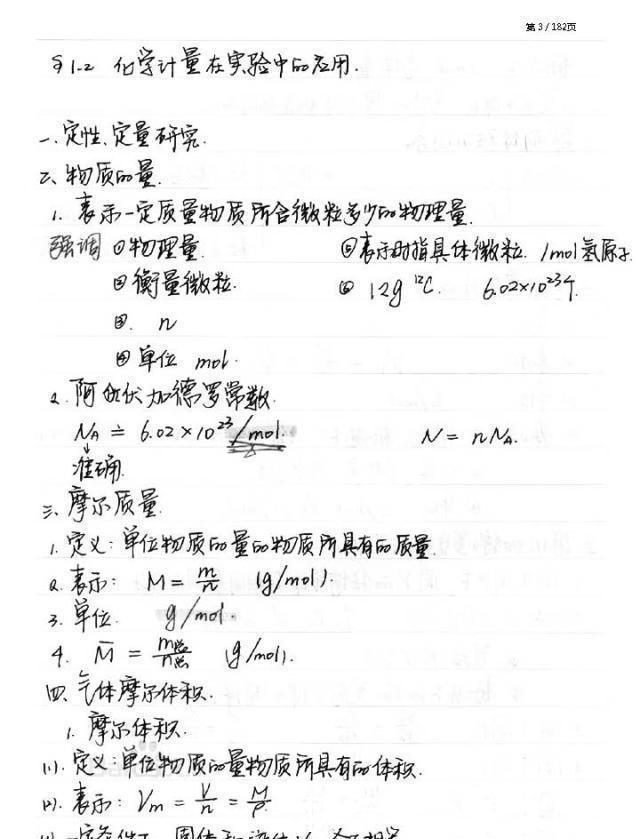 第 3 / 182页
§1-2 化学计量在实验中的应用.
一、定性、定量研究.
二、物质的量.
1. 表示一定质量物质所含微粒多少的物理量.
强调 ①物理量. ⑤表示时指具体微粒. 1mol氢原子
②衡量微粒. ⑥ 12g ¹²C. 6.02×10²³个.
③. n
④单位 mol.
2. 阿伏加德罗常数.
N_A ≐ 6.02×10²³/mol. N = nN_A.
↓
准确
三、摩尔质量.
1. 定义:单位物质的量的物质所具有的质量.
2. 表示: M = m/n (g/mol).
3. 单位. g/mol.
4. M̄ = m总/n总 (g/mol).
四、气体摩尔体积.
1. 摩尔体积.
(1). 定义:单位物质的量物质所具有的体积.
(2). 表示: Vm = V/n = M/ρ.